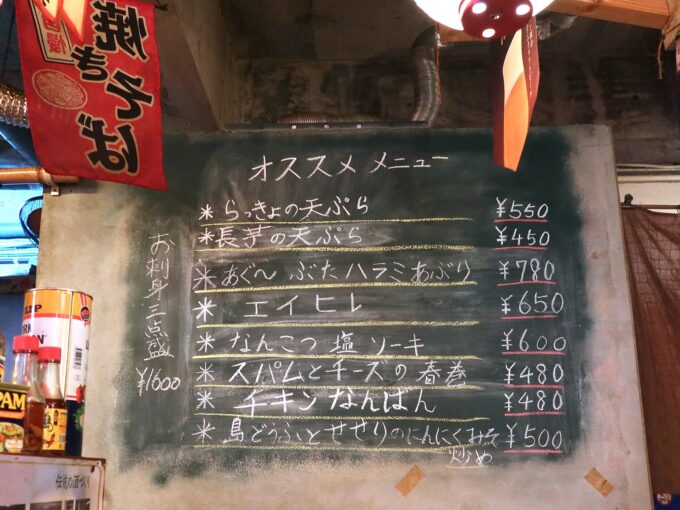 焼きそば
オススメ メニュー
* らっきょの天ぷら ¥550
* 長芋の天ぷら ¥450
* あぐー ぶたハラミあぶり ¥780
* エイヒレ ¥650
* なんこつ 塩 ソーキ ¥600
* スパムとチーズの春巻 ¥480
* チキン なんばん ¥480
* 島どうふとせせりのにんにくみそ ¥500
炒め
お刺身三点盛
¥1600
PAM